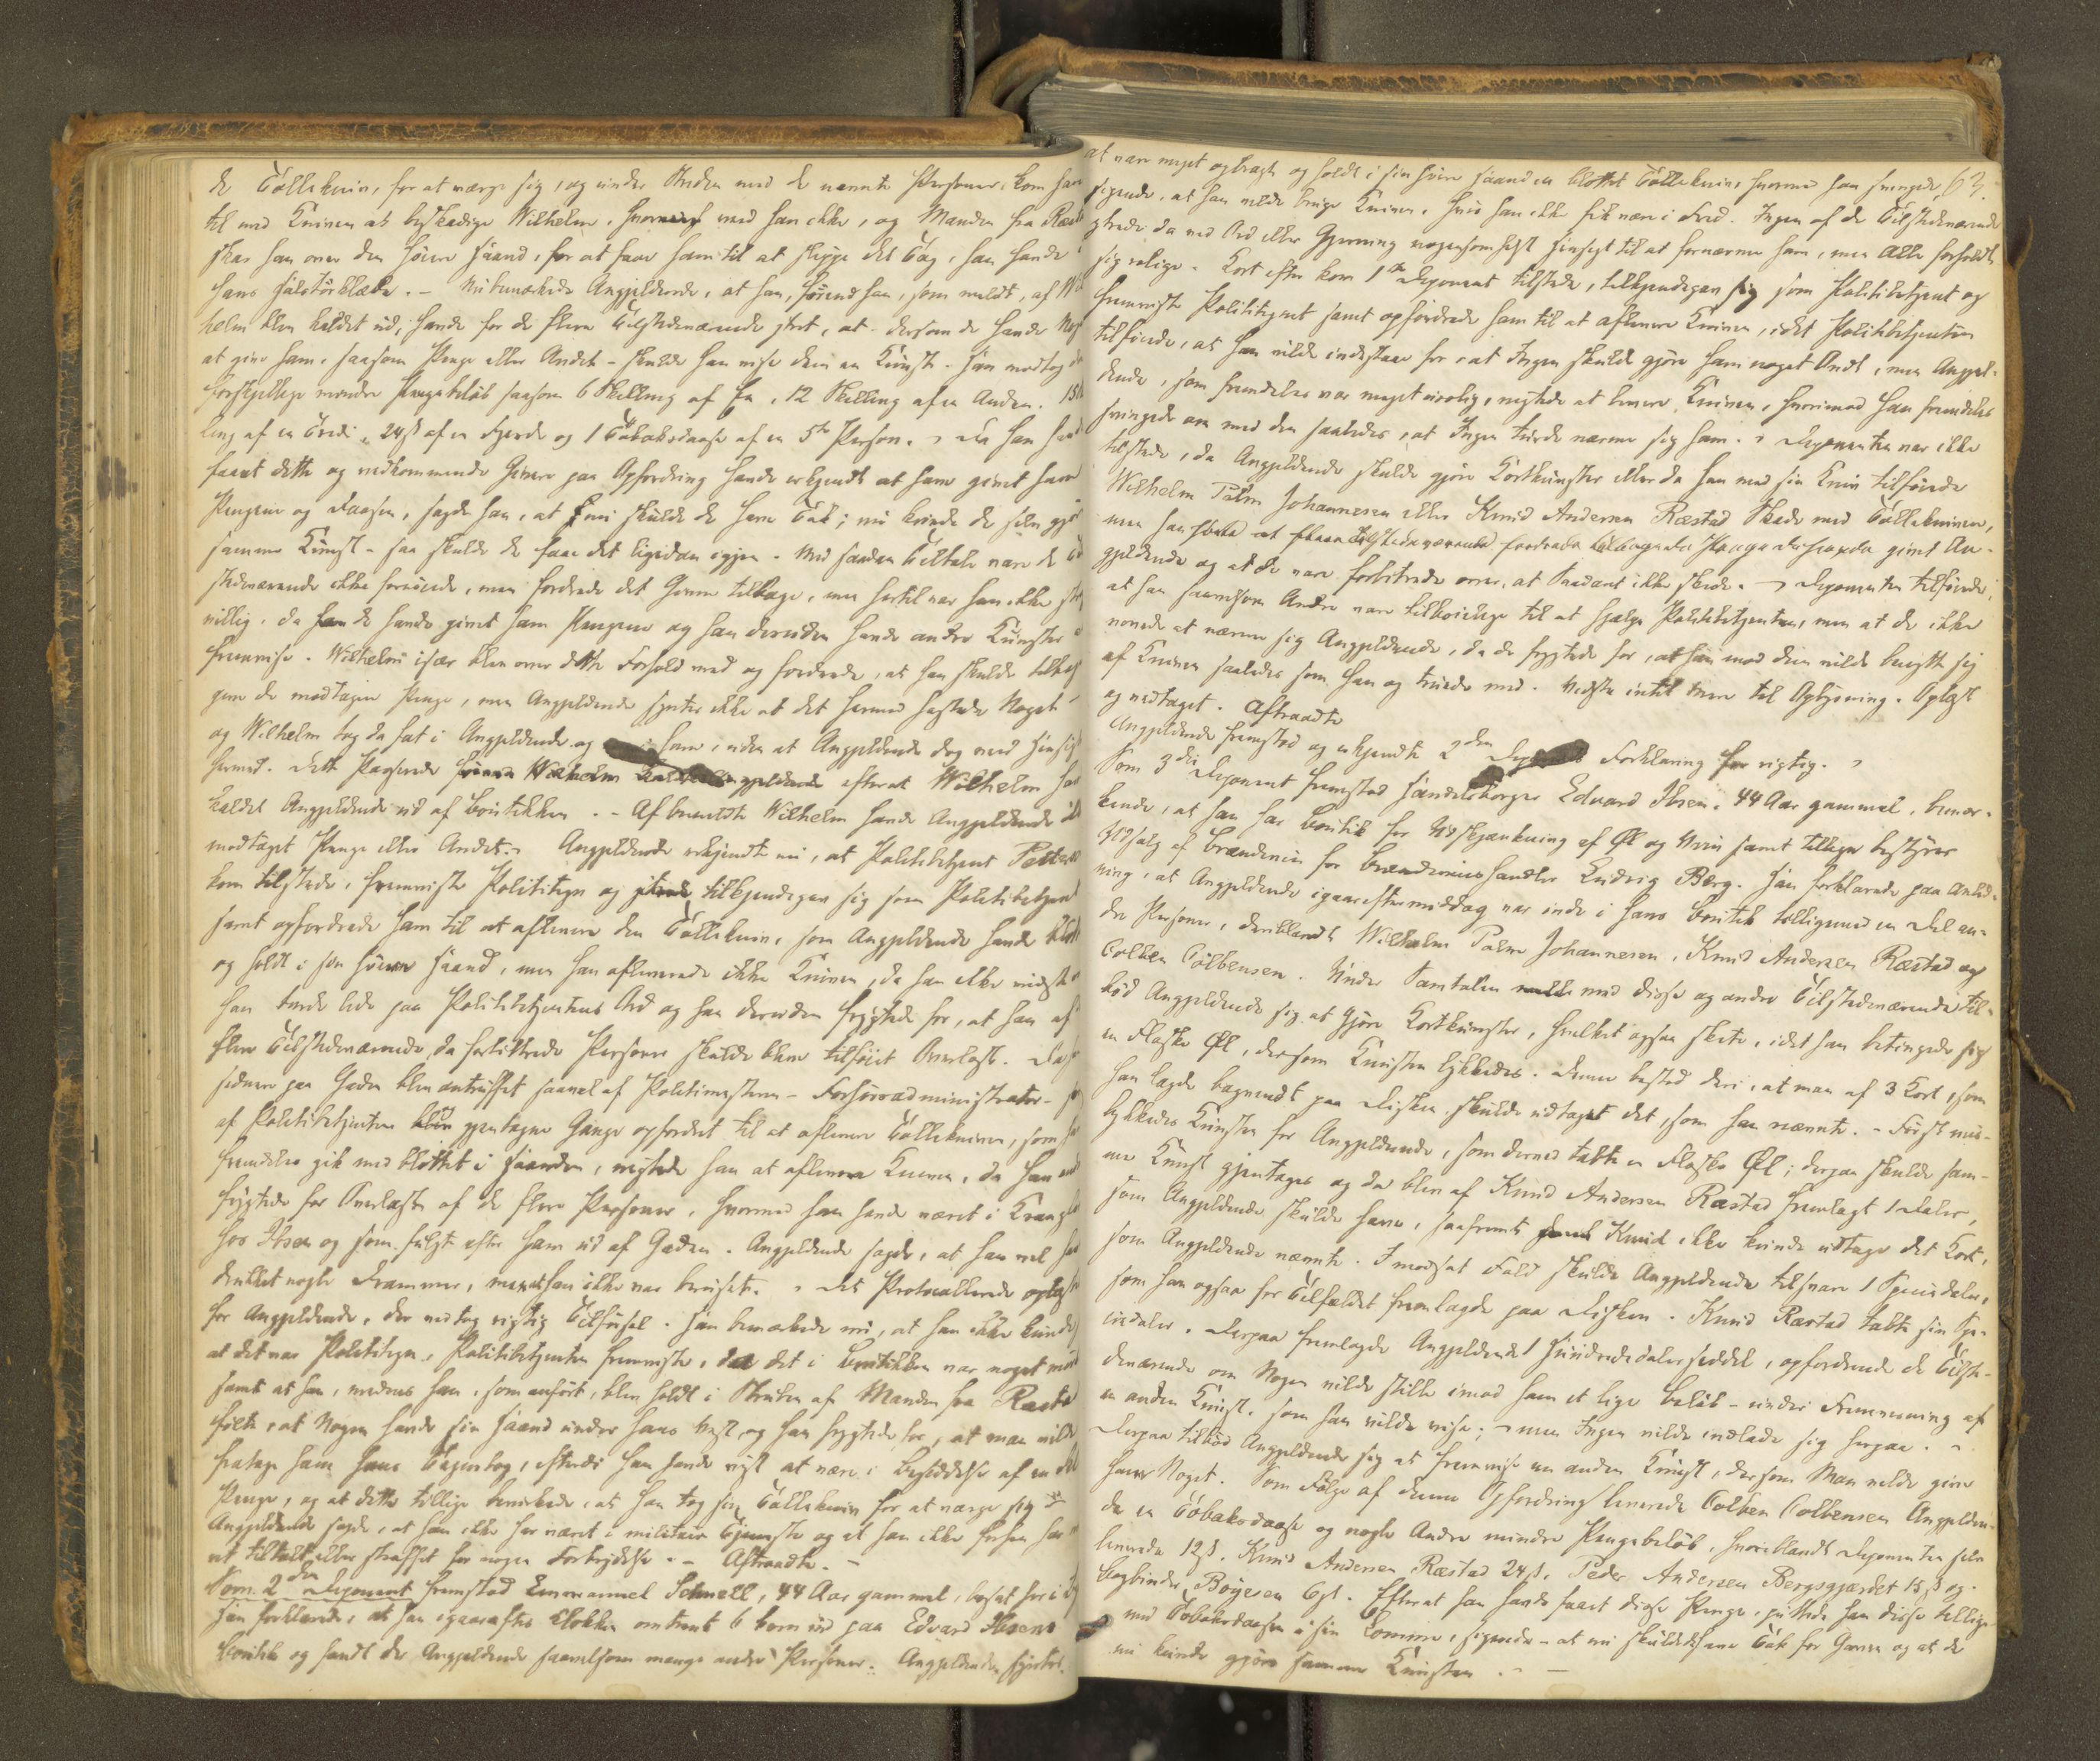 de Tollekniv, for at værge sig, og under Striden med de nævnte Personer, kom han
til med Kniven at beskadige Wilhelm, hvormed han ikke, og Manden fra Ræst
skar han over den høire Haand, for at faae ham til at slippe det Tag, han havde i
hans Halstørklæde. – Nu bemærkede Angjældende, at han, førend han, som meldt, af Wil
helm blev kaldet ud, havde for de flere Tilstedeværende ytret, at dersom de havde Noget
at give ham, saasom Penge eller Andet – skulde han vise dem en Kunst. Han modtog da
forskjellige mindre Pengebeløb saasom 6 Skilling af En, 12 Skilling af en Anden, 15 Skil
ling af en Tredie, 24 ß af en Fjerde og 1 Tobaksdaase af en 5te Person. Da han havde
faaet dette og vedkommende Givere paa Opfordring havde erkjendt at have givet ham
Pengene og Daasen, sagde han, at han skulde de have Tak; nu kunde de selv gjøre
samme Kunst – saa skulde de faae det ligedan igjen. Med saadan Tiltale vare de Til
stedeværende ikke fornøiede, men fordrede det Givne tilbage, men hertil var han ikke strax
villig, da de havde givet ham Pengene og han desuden havde andre Kunster at
fremvise. Wilhelm især blev over dette Forhold vred og fordrede, at han skulde tilbage
give de modtagne Penge, men Angjældende syntes ikke at det hermed hastede Noget
og Wilhelm tog da fat i Angjældende og ham, uden at Angjældende dog med Hensigt
hermed. Dette Passerede efterat Wilhelm havde
kaldet Angjældende ud af Boutikken. – Af bemeldte Wilhelm havde Angjældende ikke
modtaget Penge eller Andet. – Angjældende erkjendte nu, at Politibetjent Pettersen
kom tilstede, fremviste Polititegn og tilkjendegav sig som Politibetjent
samt opfordrede ham til at aflevere den Tollekniv, som Angjældende havde blottet
og holdt i sin høire Haand, men han afleverede ikke Kniven, da han ikke vidste om
han turde lide paa Politibetjentens Ord og han desuden frygtede for, at han af
flere Tilstedeværende, da forbittrede Personer skulde blive tilføiet Overlast. Da han
sidenere paa Gaden blev antruffet saavel af Politimesteren – Forhørsadministrator – som
af Politibetjenten blev gjentagne Gange opfordret til at aflevere Tollekniven, som han
fremdeles gik med blottet i Haanden, negtede han at aflevere Kniven, da han endnu
frygtede for Overlast af de flere Personer, hvormed han havde været i Krangel
hos Ibsen og som fulgte efter ham ud af Gaden. Angjældende sagde, at han vel havde
drukket nogle Drammer, men at han ikke var beruset. Det Protocollerede oplæst
for Angjældende, der vedtog rigtig Tilførsel. Han bemærkede nu, at han ikke kunde see
at det var Polititegn, Politibetjenten fremviste, da det i Boutikken var noget mørkt
samt at han, medens han, som anført, blev holdt i Struben af Manden fra Ræstad
følte, at Nogen havde sin Haand under hans Vest, og han frygtede for, at man vilde
fratage ham hans Tegnebog, efterdi han havde viist at være i Besiddelse af en Del
Penge, og at dette tillige bevirkede, at han tog sin Tollekniv for at værge sig.
Angjældende sagde, at han ikke har været i militair Tjeneste og at han ikke forhen har vær
et tiltalt eller straffet for nogen Forbrydelse. – Aftraadte. –
Som 2den Deponent fremstod Emmanuel Schnell, 44 Aar gammel, bosat her i By
Han forklarede, at han igaaraftes Klokken omtrent 6 kom ind paa Edvard Ibsens
Boutik og fandt der Angjældende saavelsom mange andre Personer. Angjældende syntes
63.
at være meget opbragt og holdt i sin høire Haand en blottet Tollekniv, hvormed han svingede,
sigende, at han vilde bruge Kniven, hvis han ikke fik være i Fred. Ingen af de Tilstedeværende
ytrede da ved Ord eller Gjerning nogensomhelst Hensigt til at fornærme ham, men Alle forholdt
sig rolige. Kort efter kom 1ste Deponent tilstede, tilkjendegav sig som Politibetjent og
fremviste Polititegnet samt opfordrede ham til at aflevere Kniven, idet Politibetjenten
tilføiede, at han vilde indestaae for, at Ingen skulde gjøre ham noget Ondt, men Angjæl-
dende, som fremdeles var meget urolig, negtede at levere Kniven, hvorimod han fremdeles
svingede om med den saaledes, at Ingen turde nærme sig ham. Deponenten var ikke
tilstede, da Angjældende skulde gjøre Kortkunster eller da han med sin Kniv tilføiede
Wilhelm Palm Johannesen eller Knud Andersen Ræstad Skade med Tollekniven,
men han hørte at flere Tilstedeværende fordrede tilbage de Penge de havde givet An-
gjældende og at de vare forbitrede over, at Saadant ikke skede. Deponenten tilføiede,
at han saavelsom Andre vare tilbøielige til at hjælpe Politibetjenten, men at de ikke
vovede at nærme sig Angjældende, da de frygtede for, at han mod dem vilde benytte sig
af Kniven saaledes som han og truede med. Vidste intet mere til Oplysning. Oplæst
og vedtaget. Aftraadte
Angjældende fremstod og erkjendte 2den Deponents Forklaring for rigtig.
Som 3die Deponent fremstod Handelsborger Edvard Ibsen, 44 Aar gammel, bemær-
kende, at han har Boutik for Udskjænkning af Øl og Viin samt tillige bestyrer
Udsalg af Brændeviin for Brændeviinshandler Ludvig Berg. Han forklarede paa Anled-
ning, at Angjældende igaareftermiddag var inde i hans Boutik tilligemed en Del an-
dre Personer, deriblandt Wilhelm Palm Johannesen, Knud Andersen Ræstad og
Colben Colbensen. Under Samtalen med disse og andre Tilstedeværende til-
bød Angjældende sig at gjøre Kortkunster, hvilket ogsaa skete, idet han betingede sig
en Flaske Øl, dersom Kunsten lykkedes. Denne bestod deri, at man af 3 Kort, som
han lagde bagvendt paa Disken, skulde udtaget det, som han nævnte. – Først mis-
lykkedes Kunsten for Angjældende, som derved tabte en Flaske Øl; derpaa skulde sam-
me Kunst gjentages og da blev af Knud Andersen Ræstad fremlagt 1 Daler,
som Angjældende skulde have, saafremt Knud ikke kunde udtage det Kort,
som Angjældende nævnte. I modsat Fald skulde Angjældende tilsvare 1 Speciedaler,
som han ogsaa for Tilfældet fremlagde paa Disken. Knud Ræstad tabte sin Spe-
ciedaler. Derpaa fremlagde Angjældende 1 Hundredaleseddel, opfordrende de Tilste-
deværende om Nogen vilde stille imod ham et lige Beløb – under Fremvisning af
en anden Kunst, som han vilde vise; men Ingen vilde indlade sig herpaa.
Derpaa tilbød Angjældende sig at fremvise en anden Kunst, dersom Man vilde give
ham Noget. Som Følge af denne Opfordring leverede Colben Colbensen Angjælden-
de en Tobaksdaase og nogle Andre mindre Pengebeløb, hvoriblandt Deponenten selv
leverede 12 ß, Knud Andersen Ræstad 24 ß, Peder Andersen Bergsgjærdet 15 ß og
Bogbinder Böyesen 6 ß. Efterat han havde faaet disse Penge, puttede han disse tillige-
med Tobaksdaasen i sin Lomme, sigende – at nu skulde de have Tak for Gaven og at de
nu kunde gjøre samme Kunsten. –